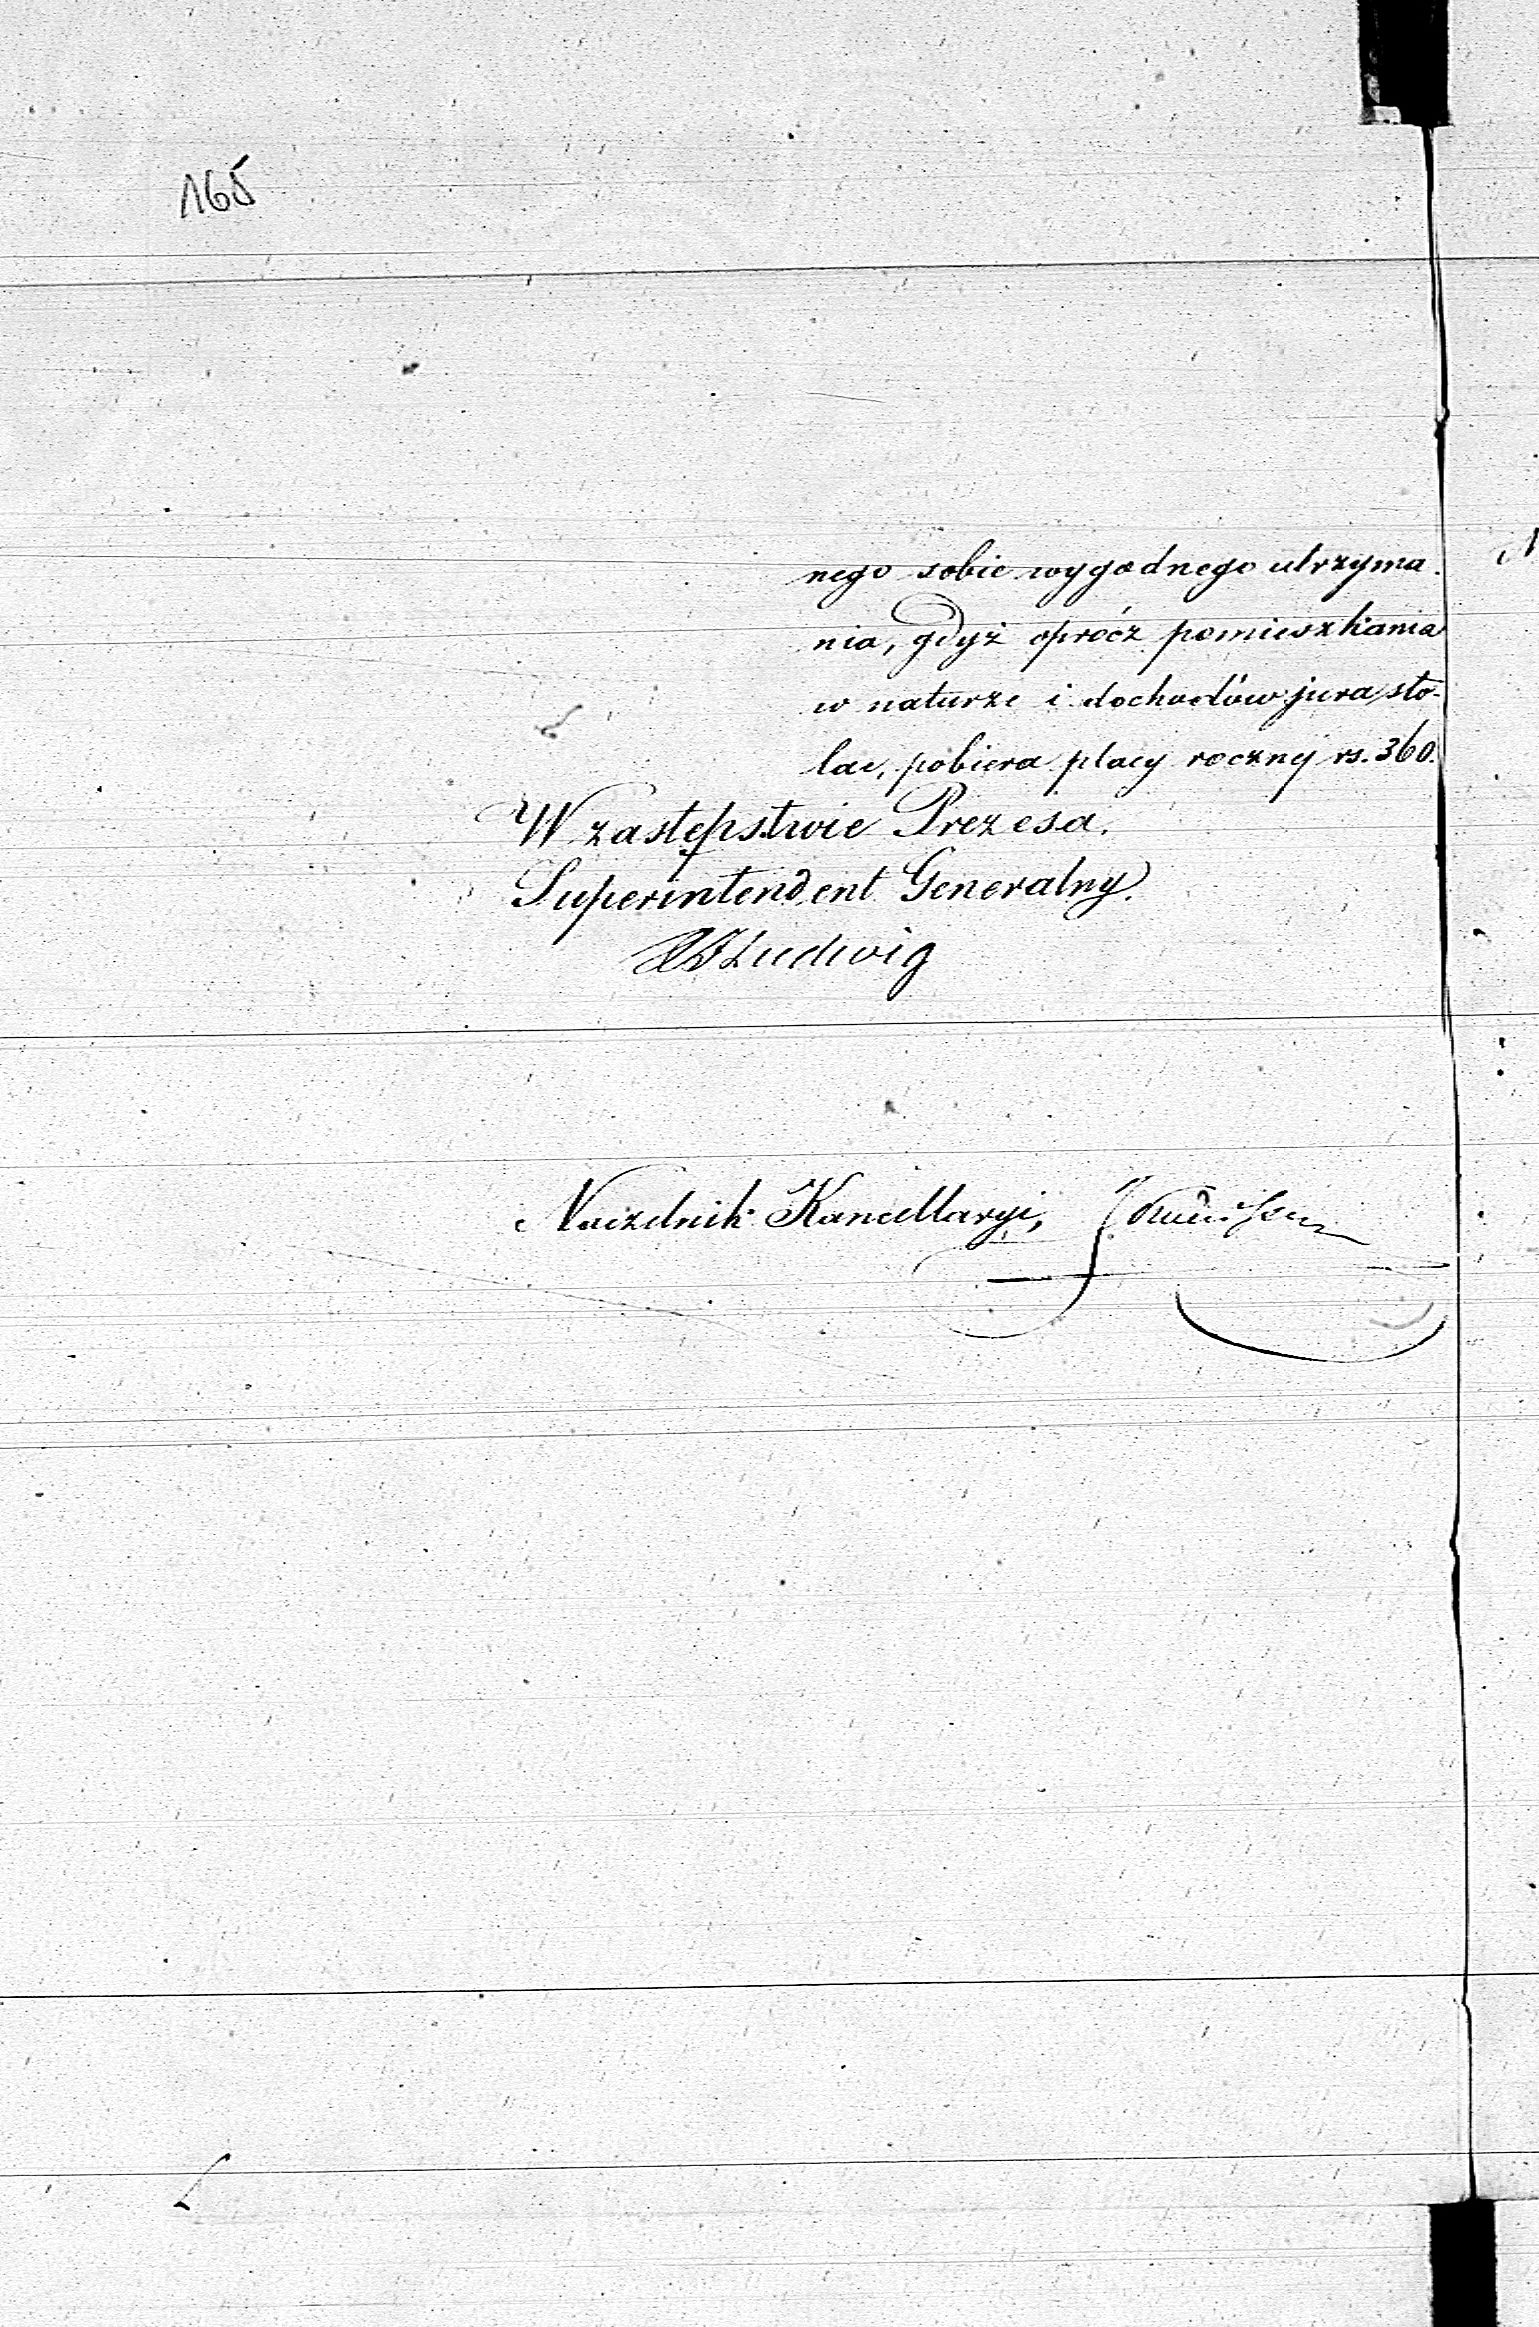 165
nego sobie wygodnego utrzyma-
nia, gdyż oprócz pomieszkania
w naturze i dochodów jura sto-
lae, pobiera płacy roczney rs. 360.
W zastępstwie Prezesa.
Superintendent Generalny.
Ludwig
Naczelnik Kancellaryi,